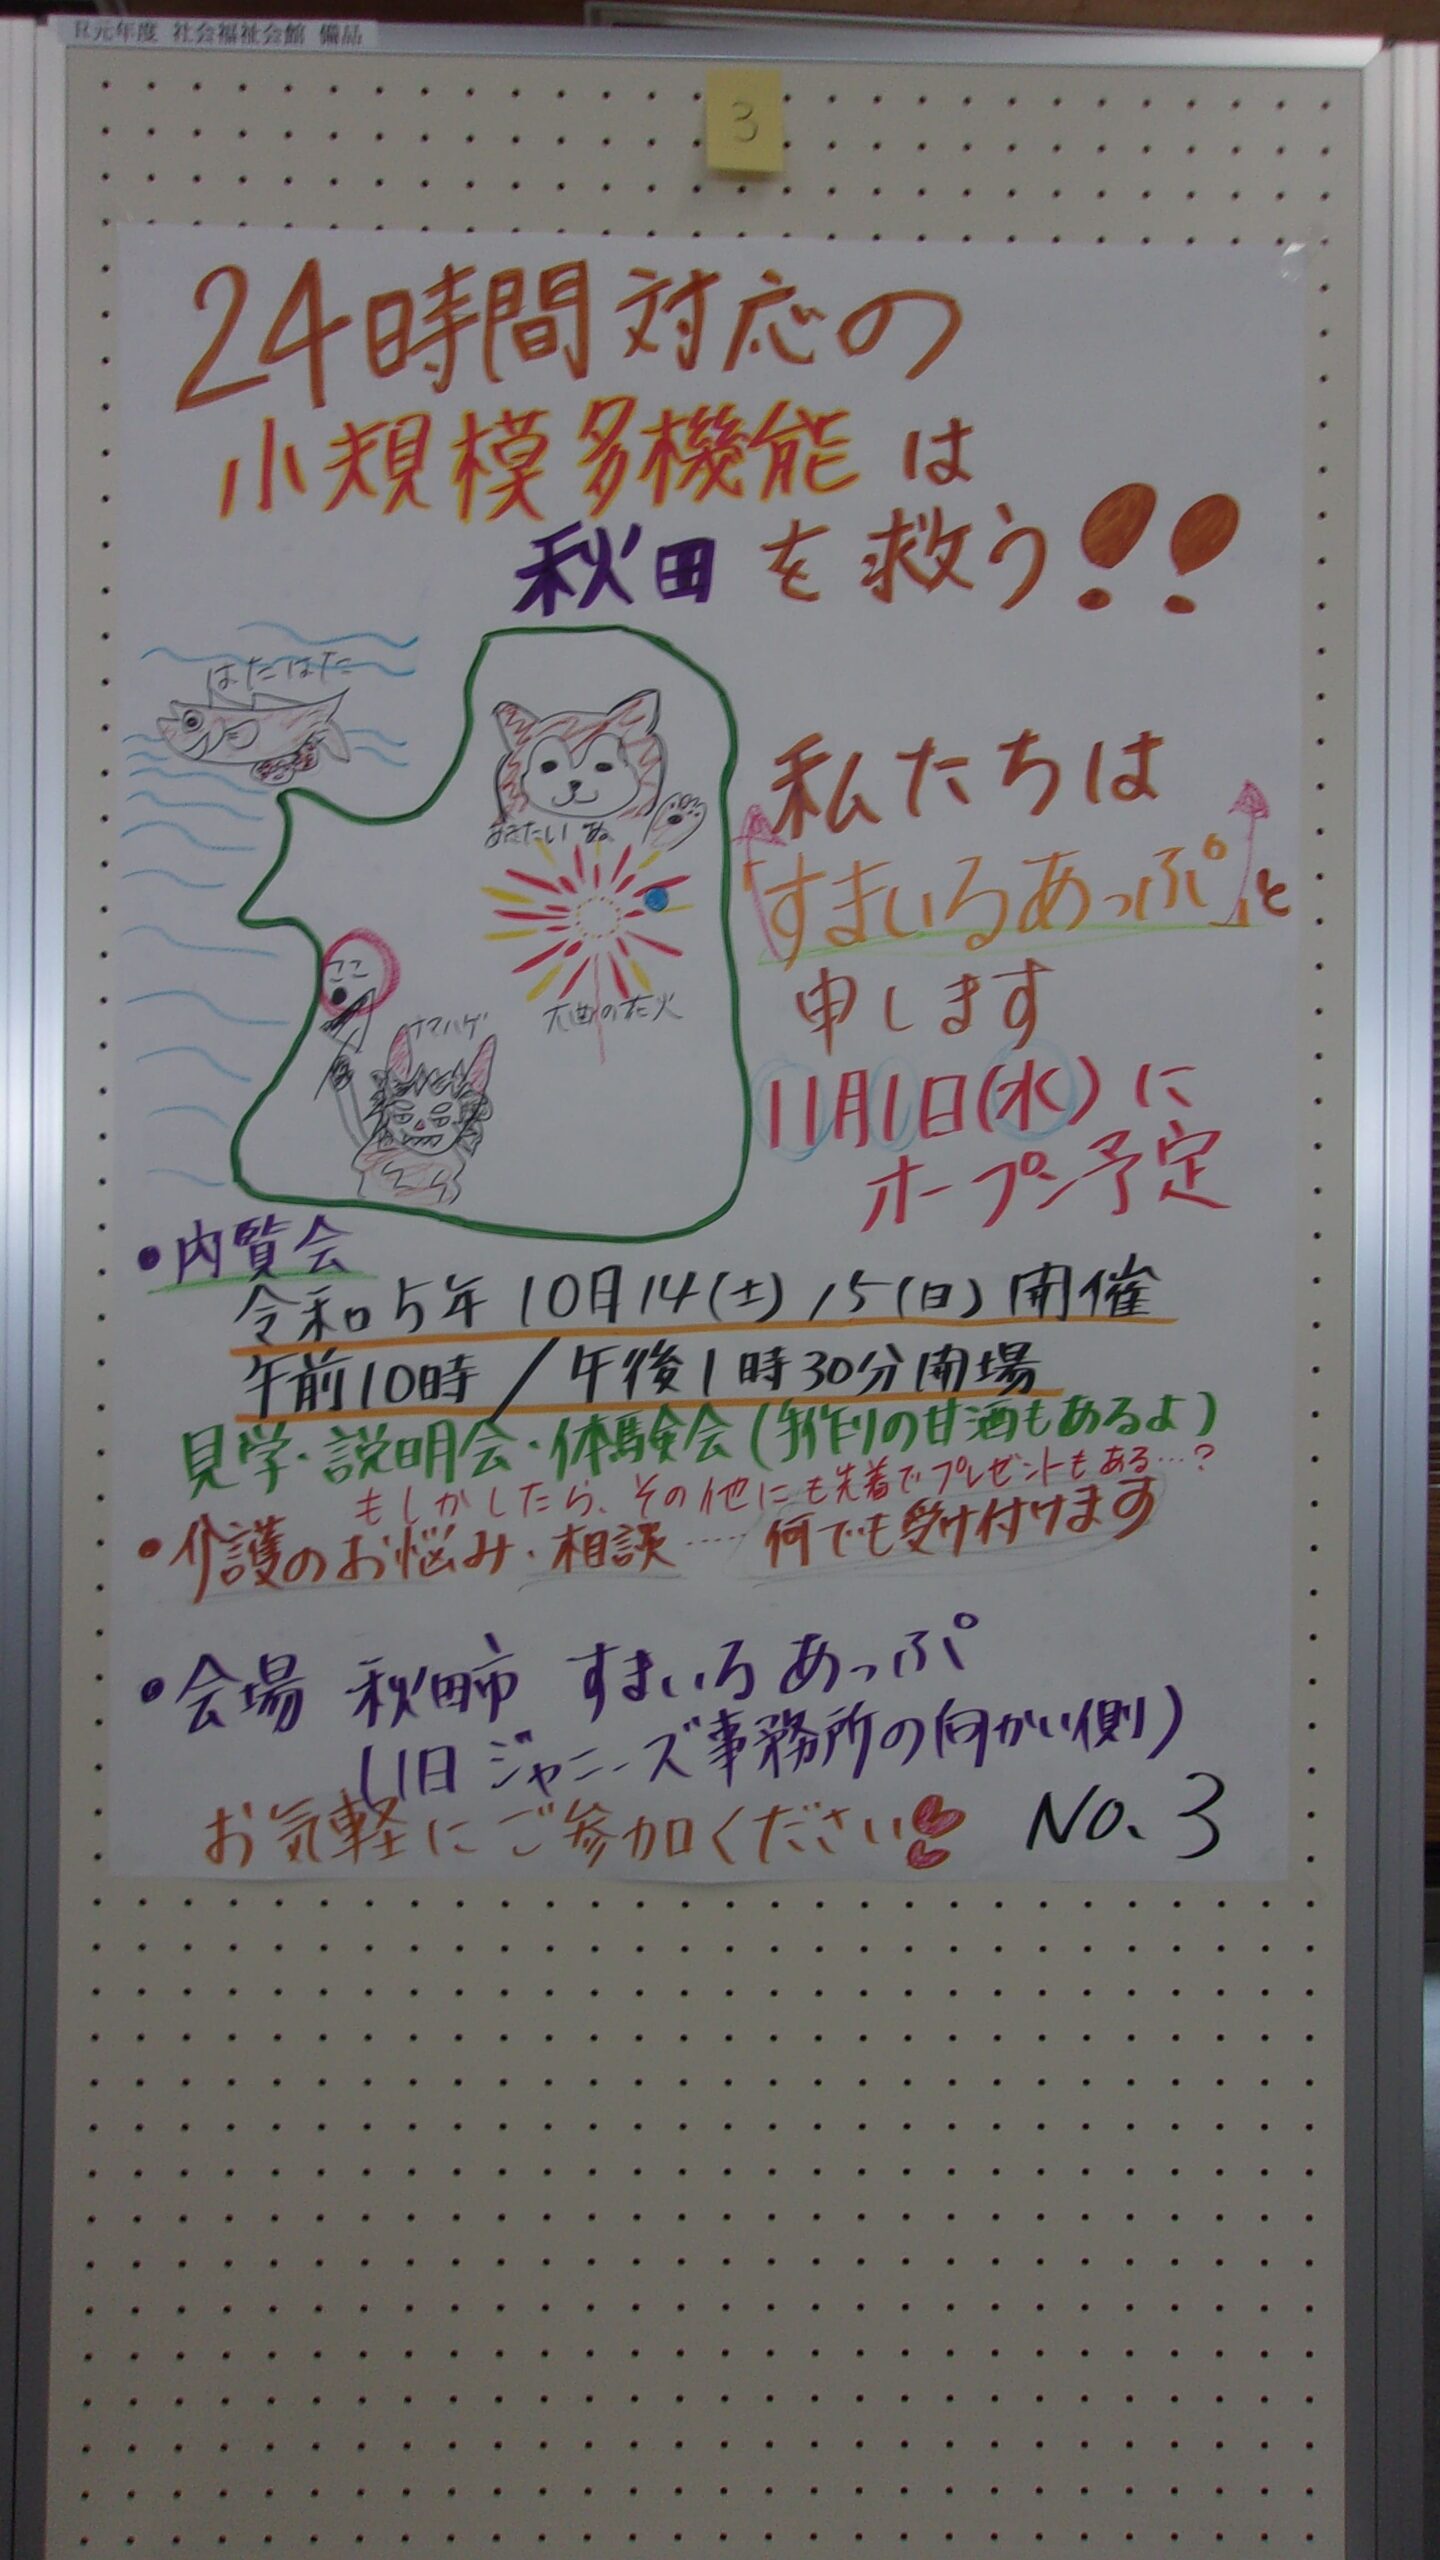 R元年度 社会福祉会館 備品
3
24時間対応の
小規模多機能は
秋田を救う!!
はたはた
あきたいぬ
大曲の花火
ここ
ナマハゲ
私たちは
「すまいるあっぷ」と
申します
11月1日(水)に
オープン予定
・内覧会
令和5年10月14(土)15(日)開催
午前10時/午後1時30分開場
見学・説明会・体験会(手作りの甘酒もあるよ)
もしかしたら、その他にも先着でプレゼントもある…?
・介護のお悩み・相談……何でも受け付けます
・会場 秋田市 すまいるあっぷ
(旧ジャニーズ事務所の向かい側)
お気軽にご参加ください
No.3